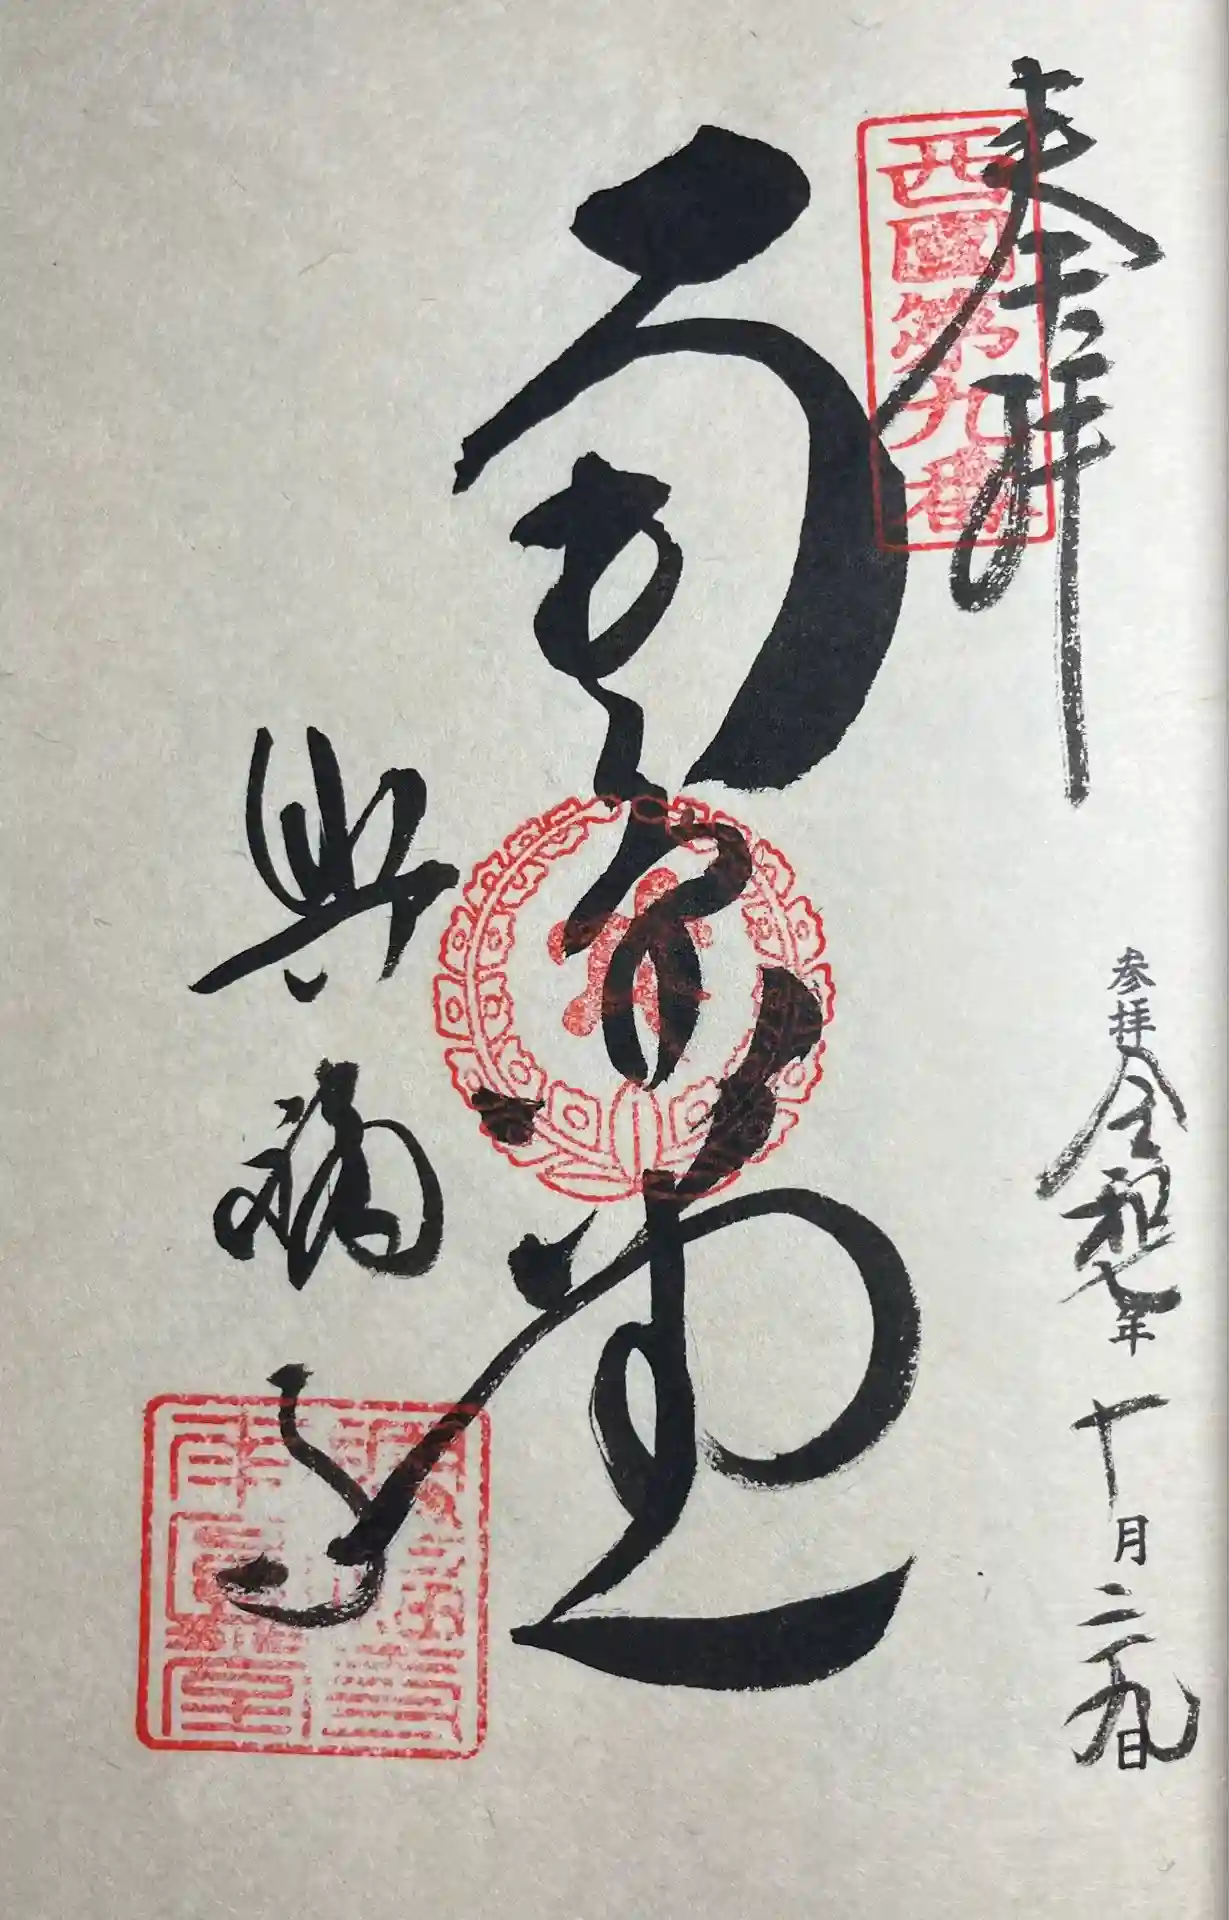 奉拝
西國第九番
参拝令和七年十月二十九日
南圓堂
興福寺